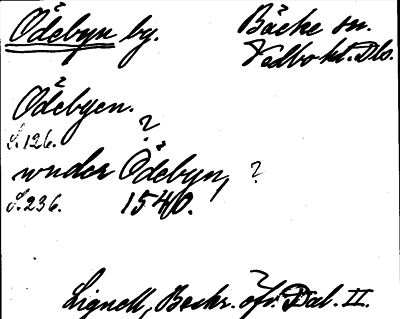 Ödebyn by. Bäcke sn.
Vedbo hd. Dls.
Ödebyen.
S. 126. ?
under Ödebyn, ?
S. 236. 1540.
Lignell, Beskr. öfv. Dal. II.